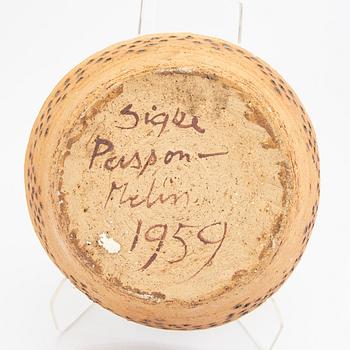 Signe
Persson-
Melin
1959